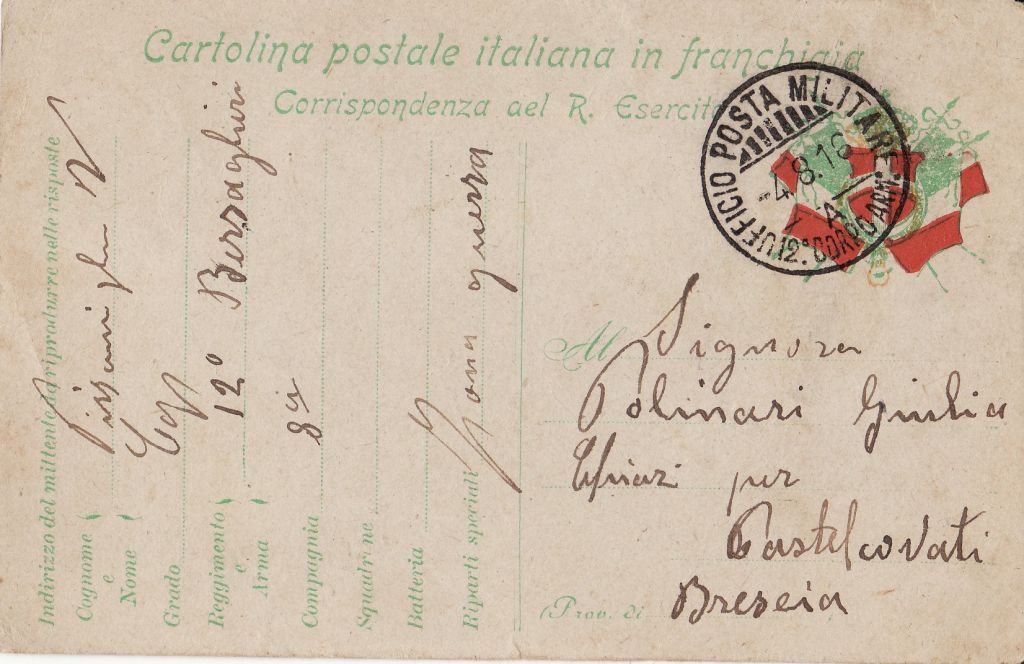 Cartolina postale italiana in franchigia
Corrispondenza del R. Esercito
UFFICIO POSTA MILITARE
-4.8.16
A
12° CORPO ARM.
Al Signora
Polinari Giulia
Chiari per
Castelcovati
(Prov. di Brescia
Indirizzo del mittente da riprodurre nelle risposte
Cognome
e
Nome
Grado
Reggimento
e
Arma
12° Bersaglieri
Compagnia
8a
Squadrone
Batteria
Riparti speciali
Zona guerra